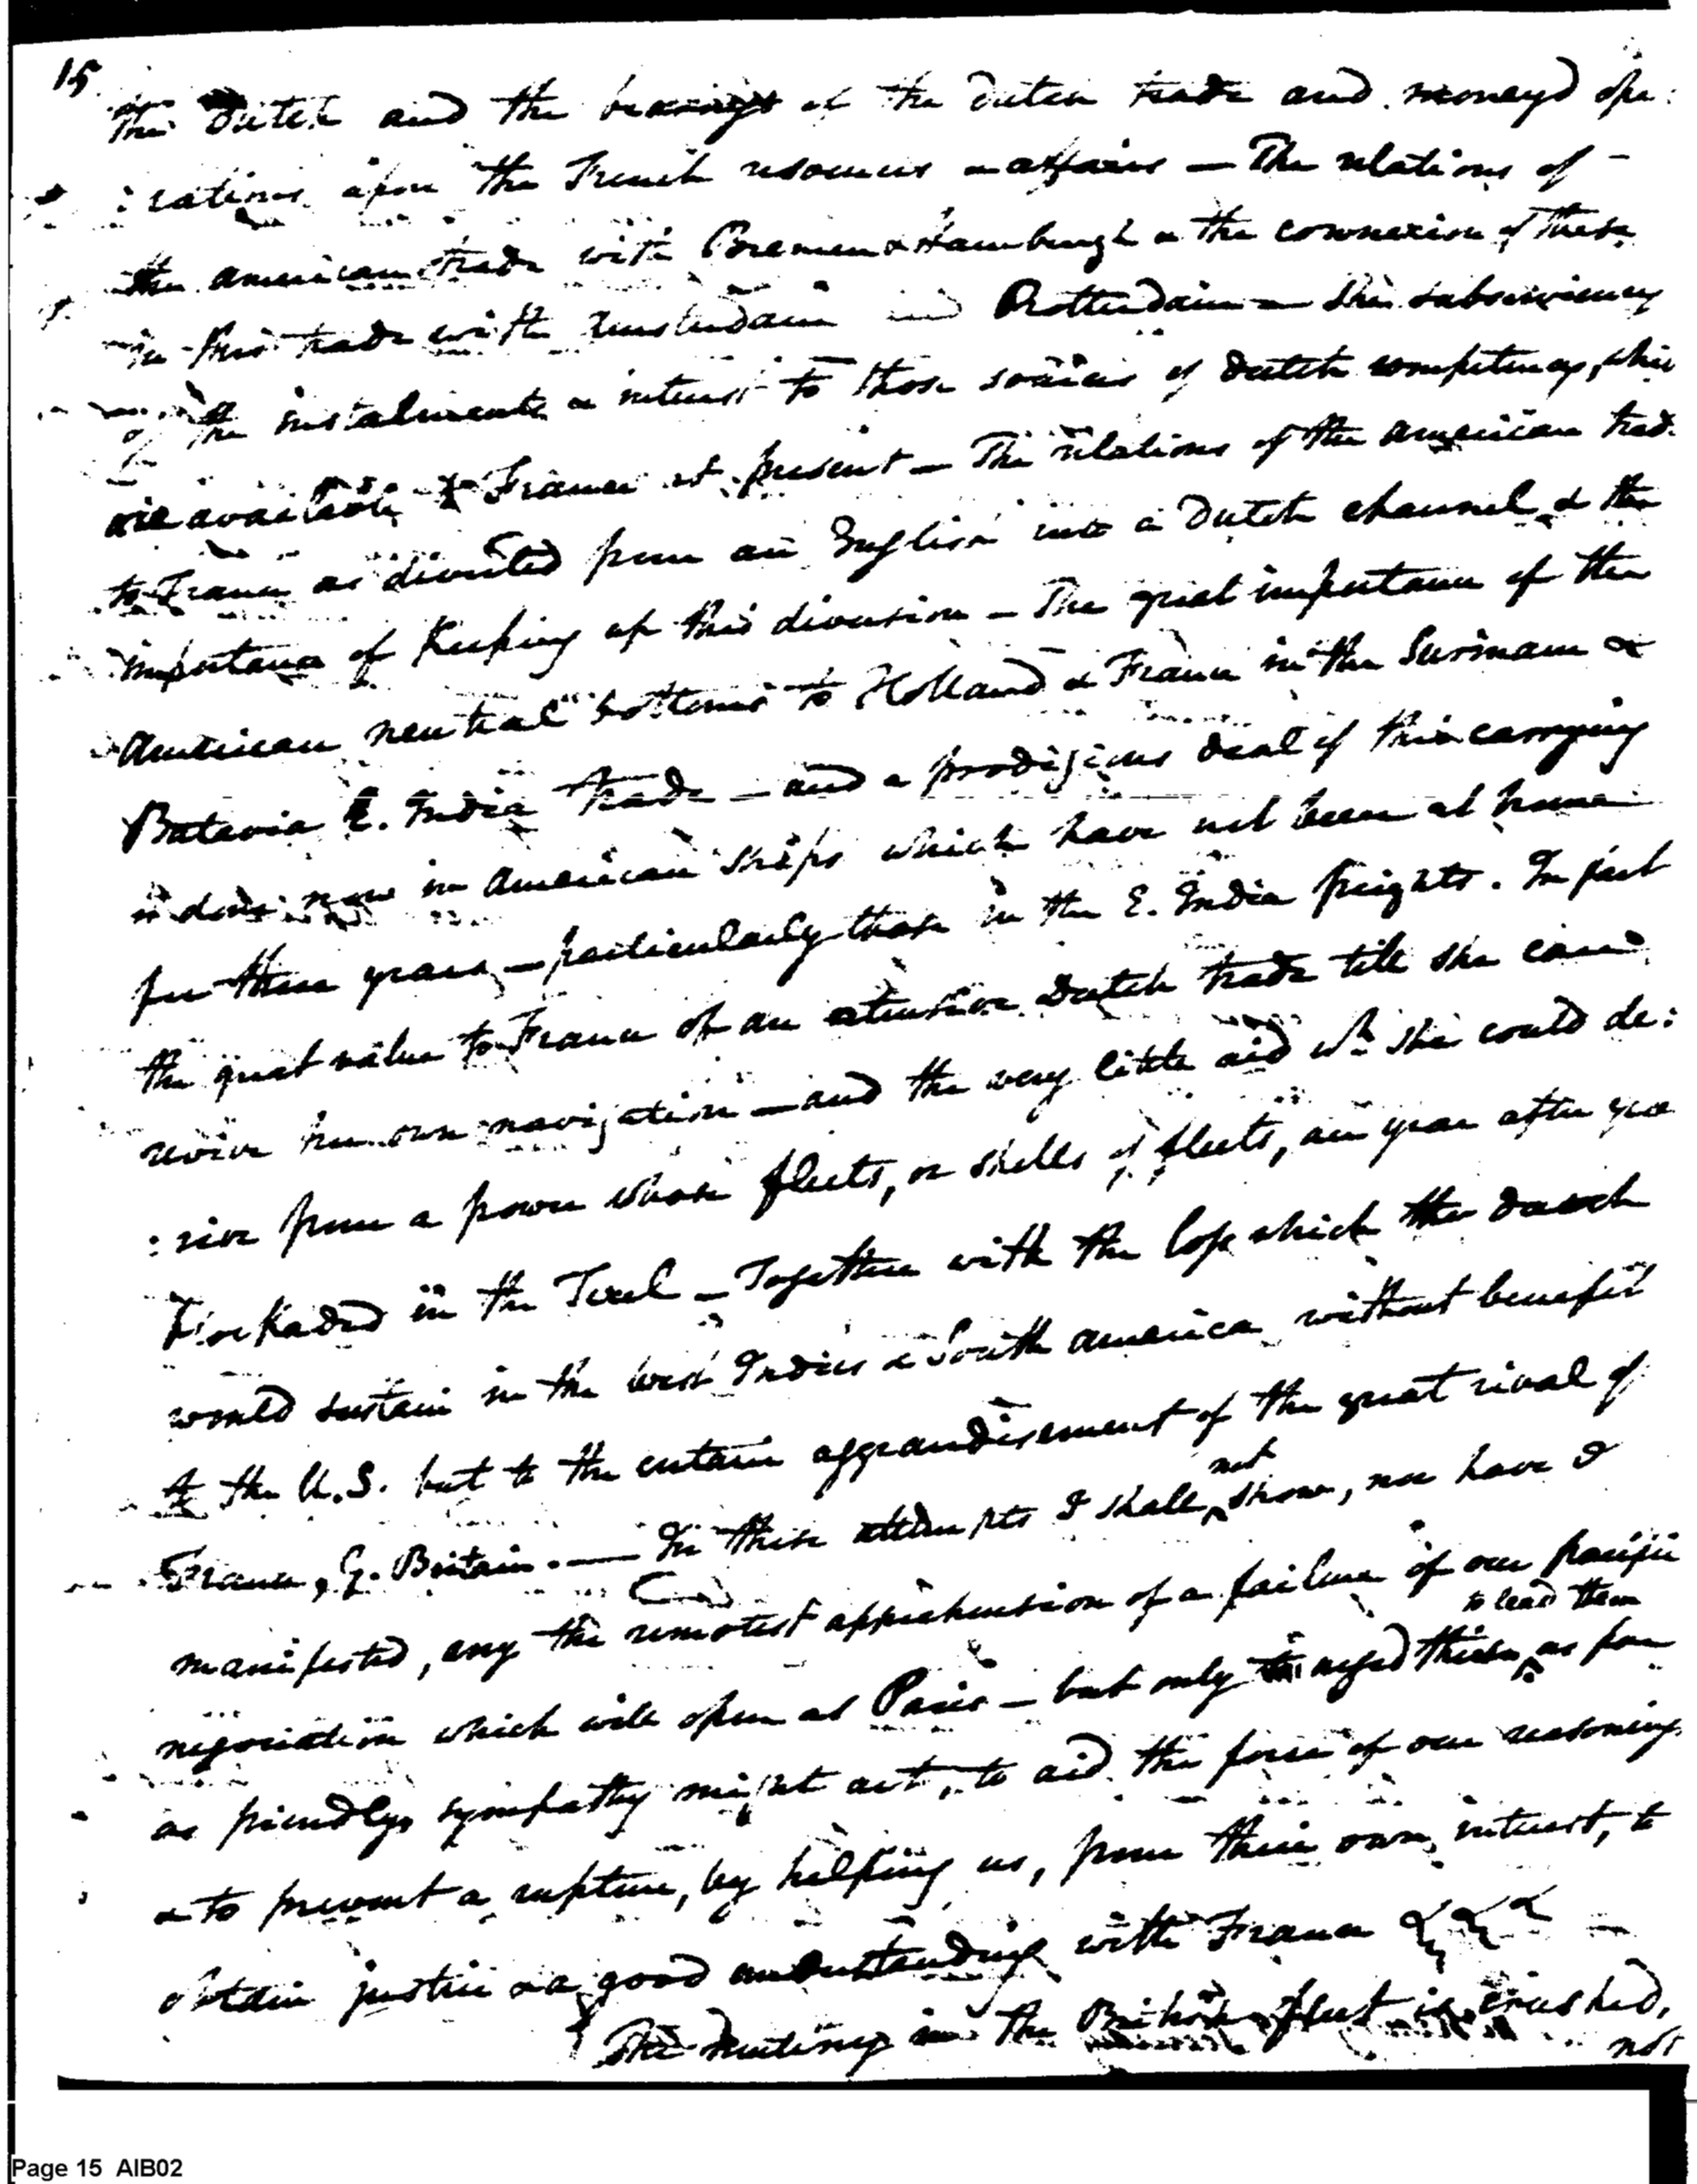 15.
the Dutch and the bearings of the Dutch trade and moneyd ope:
:rations upon the French resources & affairs — The relations of -
the American trade with Bremen & Hamburgh & the connexion of these
in this trade with Amsterdam and Rotterdam — The subserviency
of the instalments & interest to those sources of Dutch competency, which
are available to France at present — The relations of the American trade
to France as diverted from an English into a Dutch channel & the
importance of keeping up this diversion — The great importance of the
American neutral bottoms to Holland & France in the Surinam &
Batavia E. India trade — and a prodigious deal of this carrying
is done now in American ships which have not been at home
for three years — particularly those in the E. India freights. In fact
the great value to France of an extensive Dutch trade till she can
revive her own navigation — and the very little aid wh. she could de:
:rive from a power whose fleets, or shells of fleets, are year after year
blockaded in the Texel — Together with the loss which the Dutch
would sustain in the West Indies & South America without benefit
to the U.S. but to the certain aggrandisement of the great rival of
France, G. Britain. — In these attempts I shall not show, nor have I
manifested, any the remotest apprehension of a failure of our pacific
negociation which will open at Paris — but only urged them to lead them as far
as friendly sympathy might act, to aid the force of our reasoning
& to prevent a rupture, by helping us, from their own interest, to
obtain justice & a good understanding with France
The mutiny in the British fleet is crushed,
not
Page 15 AIB02